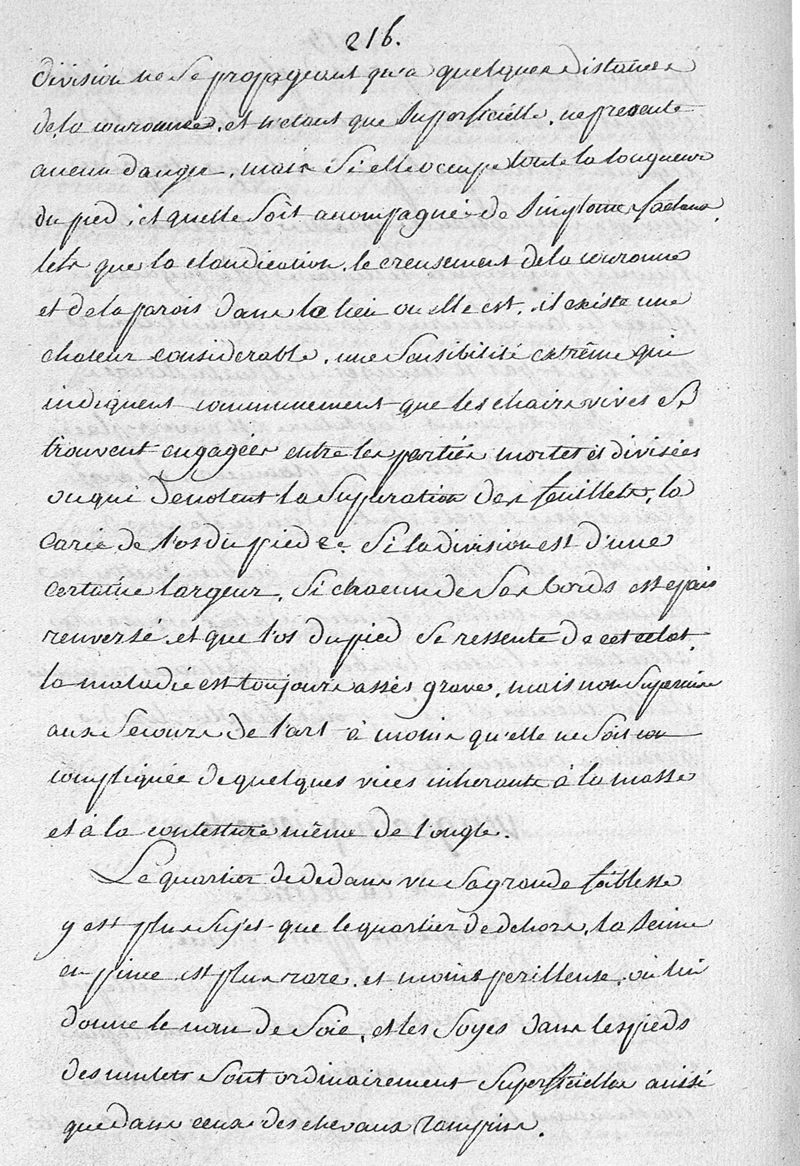 216.
division ne se propageant qu'a quelques distances
de la couronne, et n'etant que superficielle, ne presente
aucun danger, mais si elle occupe toute la longueur
du pied, et quelle soit accompagnée de simptomes facheux
tels que la claudication, le creusement de la couronne
et de la parois dans le lieu ou elle est, il existe une
chaleur considerable, une sensibilité extrême qui
indiquent communement que les chairs vives se
trouvent engagées entre les parties mortes et divisées
ou qui denotent la supuration des feuillets, la
carie de l'os du pied &c. Si la division est d'une
certaine largeur, si chacun de ses bords est epais
renversé et que l'os du pied se ressente de cet eclat
la maladie est toujours assès grave, mais non superieure
aux secours de l'art à moins qu'elle ne soit con
compliquée de quelques vices inherants à la masse
et à la contexture même de l'ongle.
Le quartier de dedans vu sa grande foiblesse
y est plus sujet que le quartier de dehors, la seime
en pince est plus rare, et moins perilleuse, on lui
donne le nom de Soie, et les Soyes dans les pieds
des mulets sont ordinairement superficielles aussi
que dans ceux des chevaux rampins.